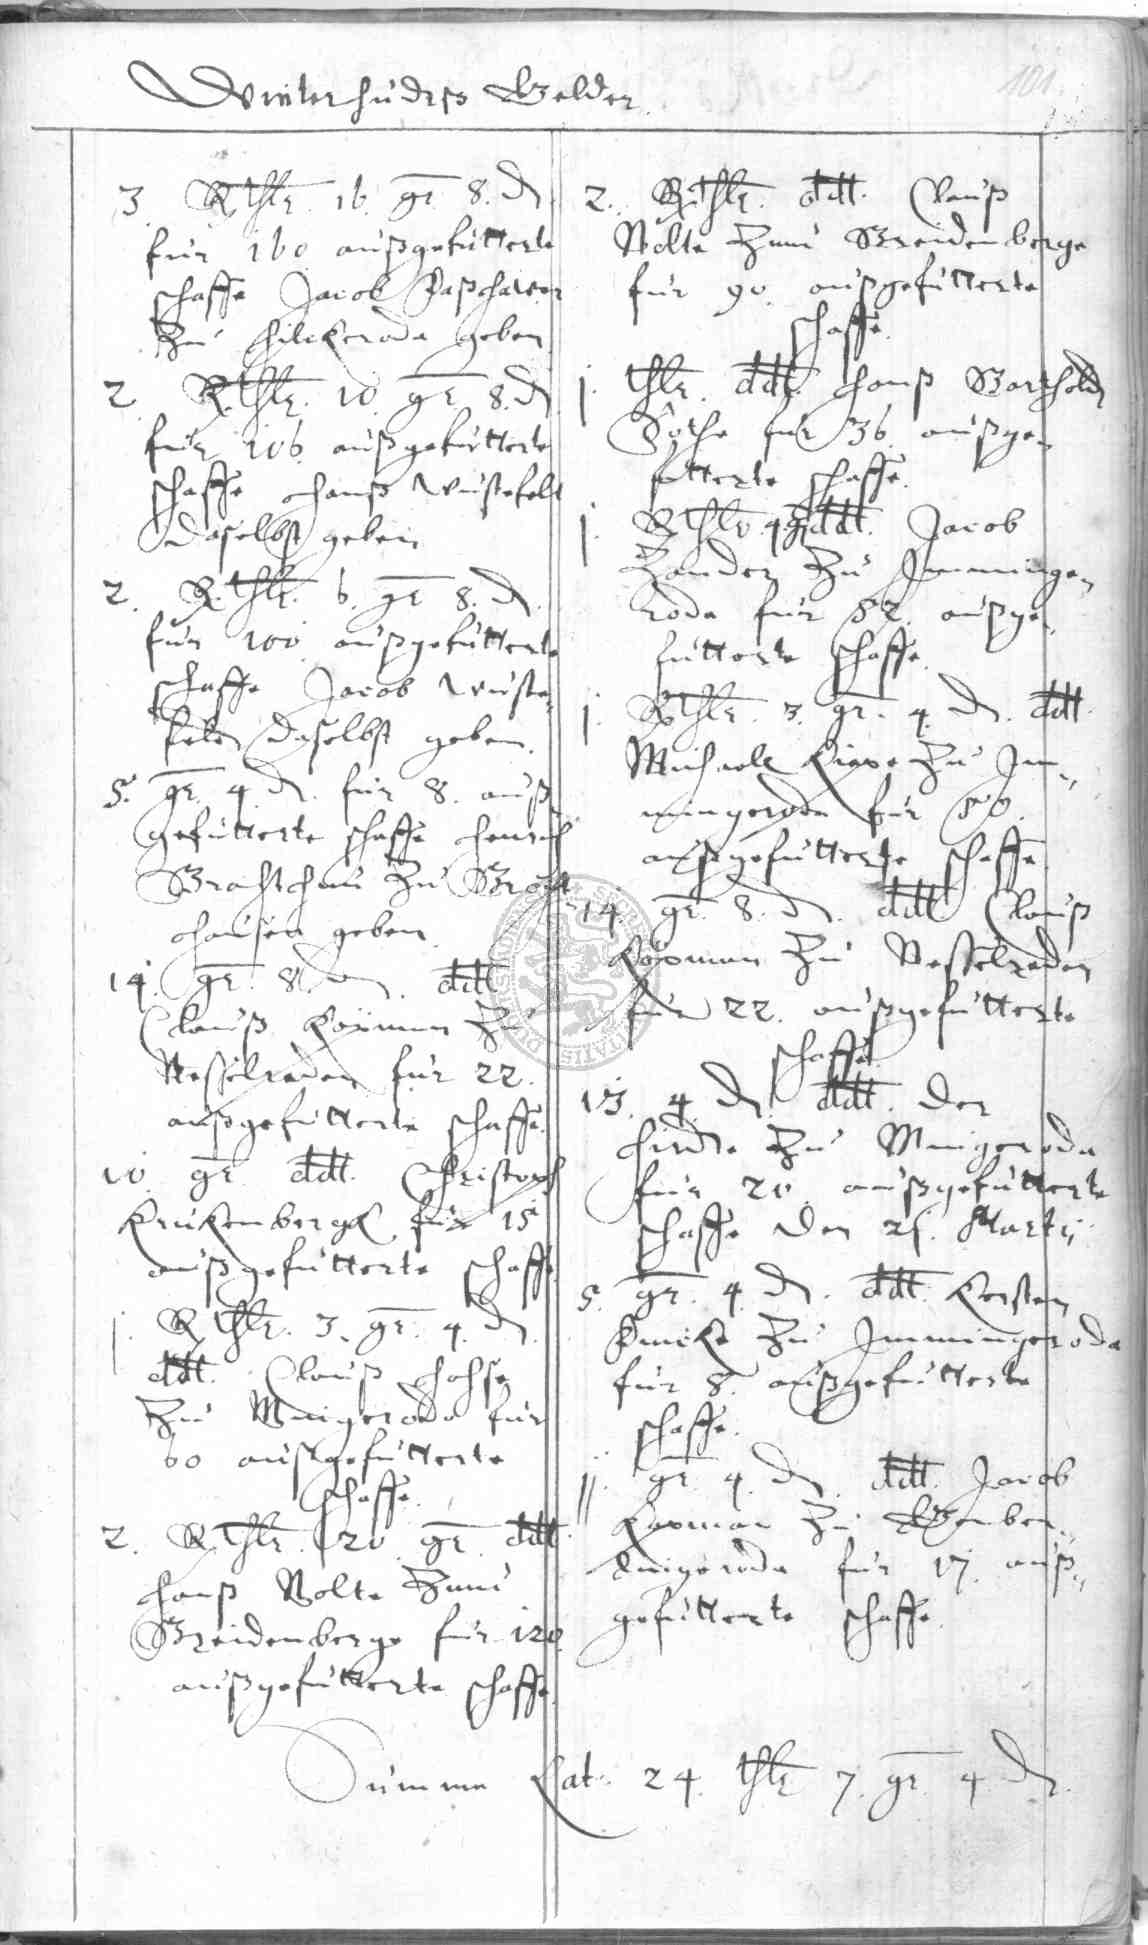 Winterhudeß Gelder
101
3. Rthlr. 16. gr. 8. d.
für 160 außgefutterte
schaffe Jacob
zu Hilckeroda geben
2. R.thlr. 10. gr. 8. d.
für 106 außgefutterte
schaffe Hanß Wustefelt
daselbst geben
2. R.thlr. 6. gr. 8. d.
für 100 außgefutterte
schaffe Jacob Wuste„
felt daselbst geben.
5. gr. 4. d. für 8. auß„
gefutterte schaffe Henrich
zu
hausen geben.
14. gr. 8. d. ddt.
Clauß Kopman zu
Nesselreden für 22.
außgefutterte schaffe.
10. gr. ddt. Christoph
Krukenbergk für 15
außgefutterte schaffe
1. Rthlr. 3. gr. 4. d.
ddt. Clauß Hohse
zu Mingeroda für
60 außgefutterte
schaffe.
2. Rthlr. 20 gr. ddt.
Hanß Nolte zum
Breidenberge für 120
außgefutterte schaffe.
2. R.thlr. ddt. Clauß
Nolte zum Breidenberge
für 90. außgefutterte
schaffe.
1. thlr. ddt. Hanß Barthold
für 36. außge„
futterte schaffe.
1. Rthlr. 4 gr ddt. Jacob
Zander zu Immingen„
roda für 52. außge„
futterte schaffe.
1. Rthlr. 3. gr. 4. d. ddt.
Michaell zu Im„
mingeroda für 50.
außgefutterte schaffe
14. gr. 8. d. ddt. Clauß
Kopman zu Nesselreden
für 22. außgefutterte
schaffe
13. 4. d. ddt. der
Hirdte zu Mingeroda
für 20. außgefutterte
schaffe den 25. Martij
5. gr. 4. d. ddt. Kersten
zu Immingeroda
für 8. außgefutterte
schaffe.
11 gr. 4. d. ddt. Jacob
Kopman zu
für 17. auß„
gefutterte schaffe.
Summa Lat. 24. thlr 7. gr. 4 d.